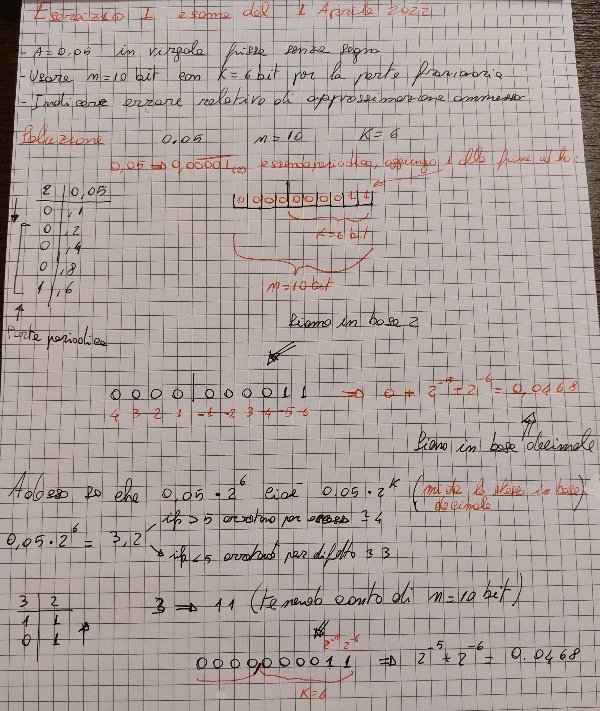 Esercizio 1 esame del 1 Aprile 2022
- A=0.05 in virgola fissa senza segno
- Usare n=10 bit con K=6 bit per la parte frazionaria
- Indicare errore relativo di approssimazione ammesso
Soluzione 0.05 n=10 K=6
0,05 ⇒ 0,00001(2) essendo periodica, aggiungo 1 alla fine
2 | 0,05
0 | ,1
0 | ,2
0 | ,4
0 | ,8
1 | ,6
Parte periodica
0 0 0 0 0 0 0 0 1 1
K=6 bit
n=10 bit
Siamo in base 2
0 0 0 0 | 0 0 0 0 1 1 ⇒ 0 + 2^-5 + 2^-6 = 0,0468
4 3 2 1 -1 -2 -3 -4 -5 -6
Siamo in base decimale
Adesso so che 0,05 · 2^6 cioè 0,05 · 2^K (mi dà lo stesso in base decimale)
0,05 · 2^6 = 3,2
if > 5 arrotondo per 4
if < 5 arrotondo per difetto 3
3 | 2
1 | 1
0 | 1
3 ⇒ 11 (tenendo conto di n=10 bit)
2^-5 2^-6
0000,000011 ⇒ 2^-5 + 2^-6 = 0.0468
K=6